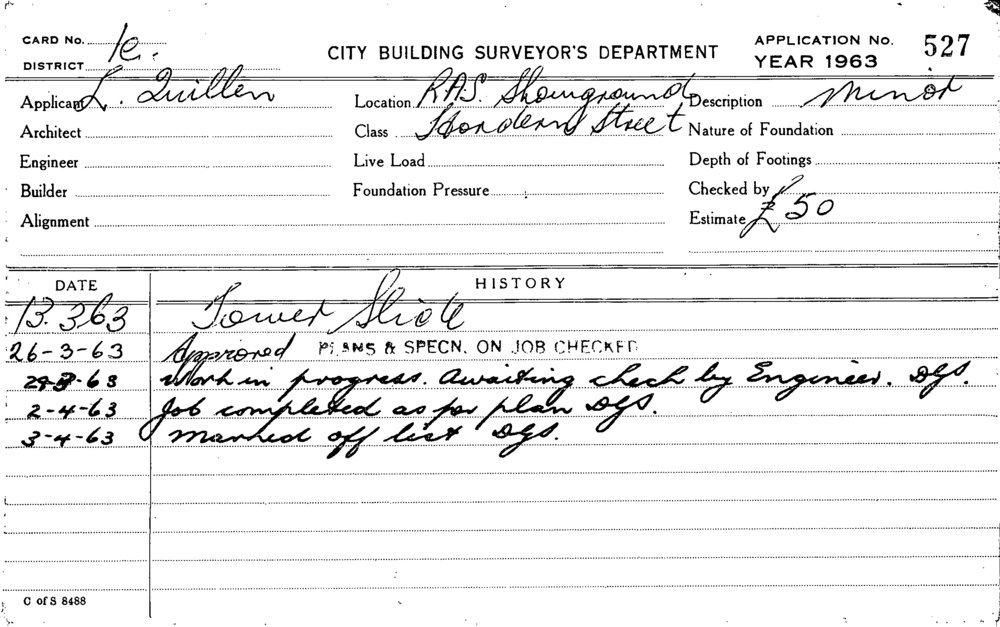 CARD No. 1c.
DISTRICT
CITY BUILDING SURVEYOR'S DEPARTMENT
APPLICATION No. 527
YEAR 1963
Applicant L. Quillen
Location R.A.S. Showground
Description Minor
Architect
Class Hordern Street
Nature of Foundation
Engineer
Live Load
Depth of Footings
Builder
Foundation Pressure
Checked by
Alignment
Estimate £50
DATE
HISTORY
13.363 Tower Slide
26-3-63 Approved PLANS & SPECN. ON JOB CHECKED
-63 Work in progress. Awaiting check by Engineer. DGS.
2-4-63 Job completed as per plan DGS.
3-4-63 Marked off list DGS.
C of S 8488